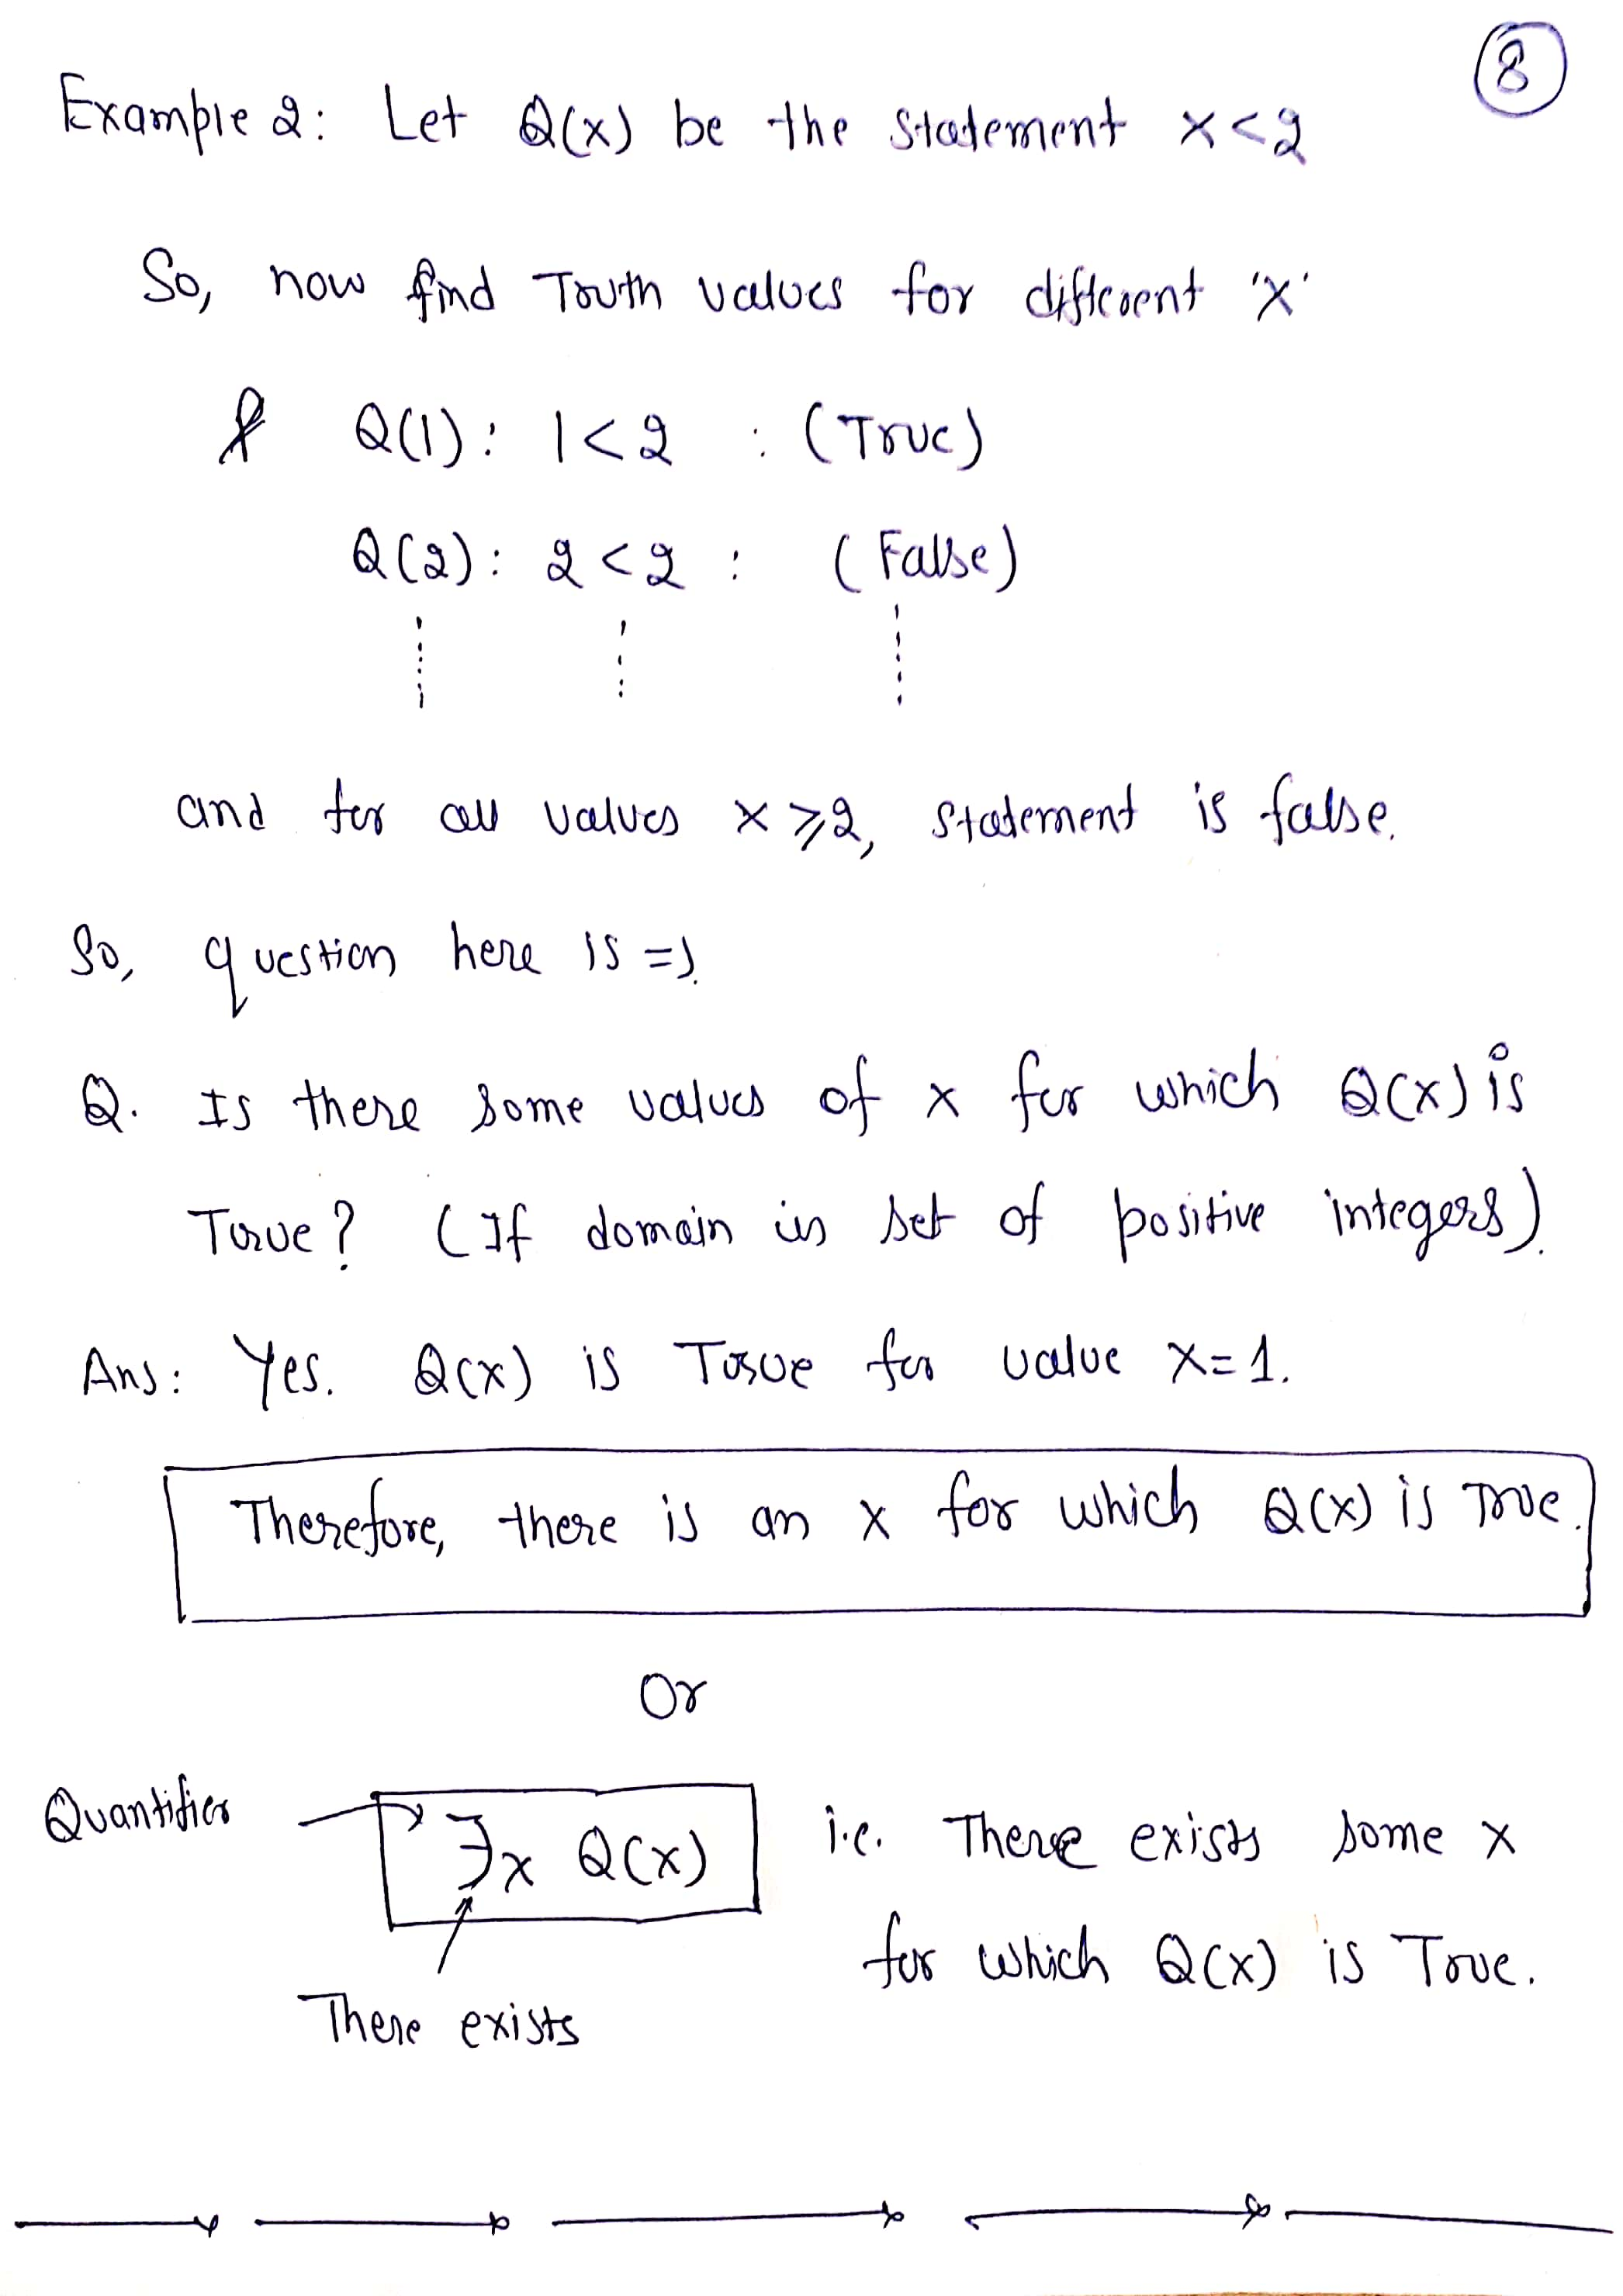 8
Example 2: Let Q(x) be the statement x<2
So, now find Truth values for different 'x'
Q(1): 1<2 : (True)
Q(2): 2<2 : (False)
and for all values x⩾2, statement is false.
So, question here is =).
Q. Is there some values of x for which Q(x) is
True? (If domain is set of positive integers).
Ans: Yes. Q(x) is True for value x=1.
Therefore, there is an x for which Q(x) is True.
Or
Quantifier ∃x Q(x) i.e. There exists some x
for which Q(x) is True.
There exists